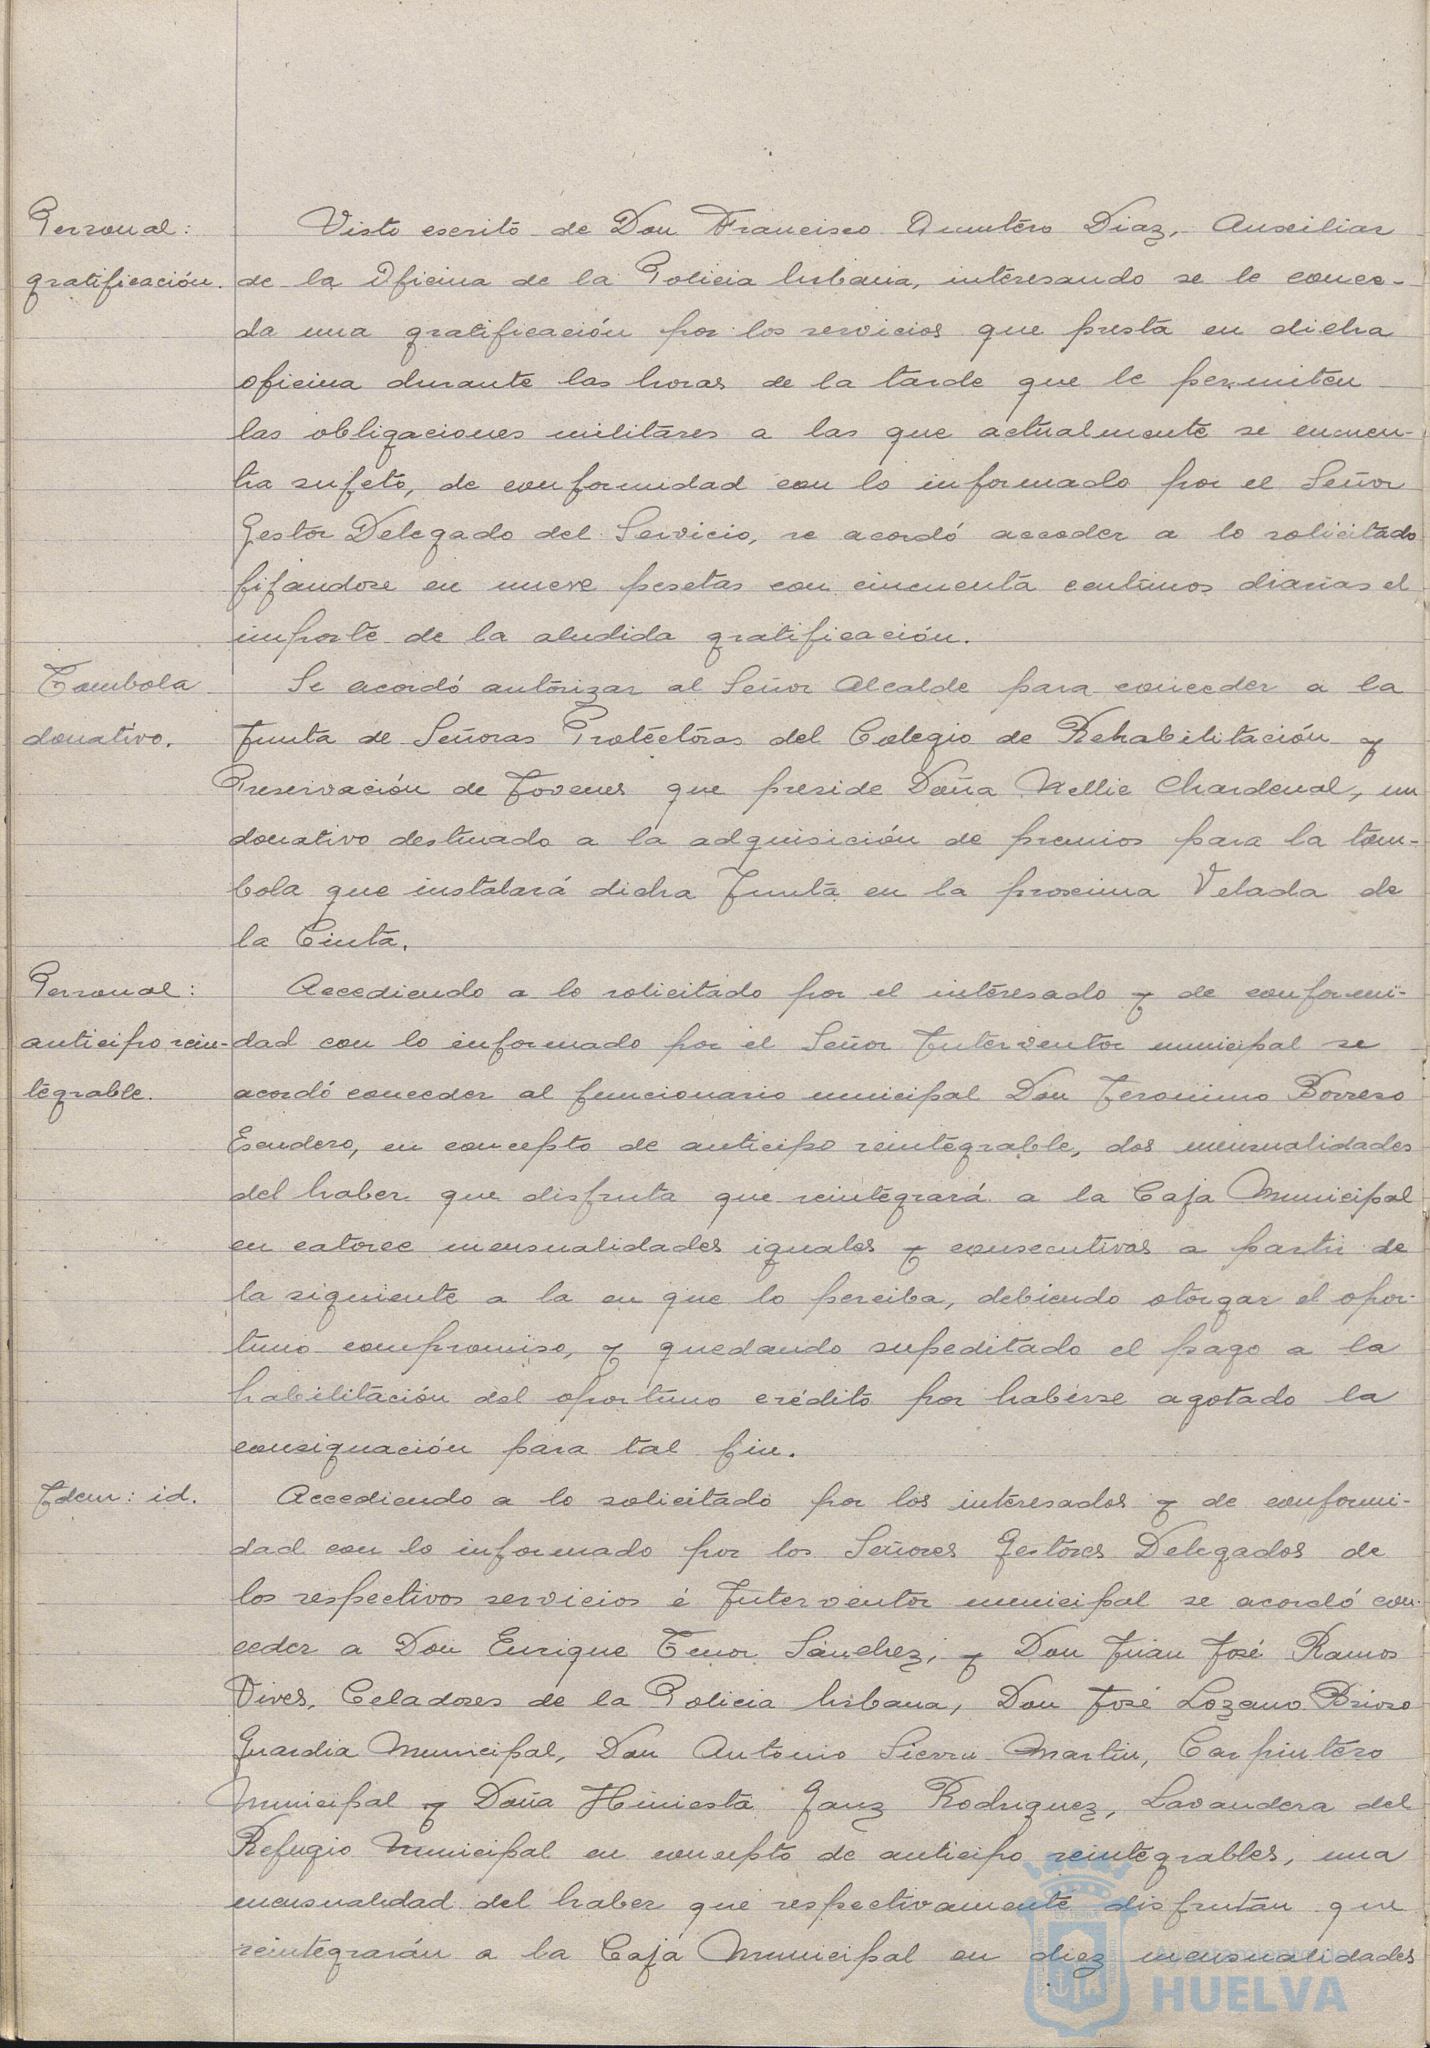 Personal:
gratificación.
Visto escrito de Don Francisco Quintero Diaz, Auxiliar
de la Oficina de la Policia Urbana, interesando se le conce-
da una gratificación por los servicios que presta en dicha
oficina durante las horas de la tarde que le permiten
las obligaciones militares a las que actualmente se encuen-
tra sujeto, de conformidad con lo informado por el Señor
Gestor Delegado del Servicio, se acordó acceder a lo solicitado
fijandose en nueve pesetas con cincuenta centimos diarias el
importe de la aludida gratificación.
Tombola
donativo.
Se acordó autorizar al Señor Alcalde para conceder a la
Junta de Señoras Protectoras del Colegio de Rehabilitación y
Preservación de Jovenes que preside Doña Nellie Chardenal, un
donativo destinado a la adquisición de premios para la tom-
bola que instalará dicha Junta en la proxima Velada de
la Cinta.
Personal:
anticipo rein-
tegrable.
Accediendo a lo solicitado por el interesado y de conformi-
dad con lo informado por el Señor Interventor municipal se
acordó conceder al funcionario municipal Don Jeronimo Borrero
Escudero, en concepto de anticipo reintegrable, dos mensualidades
del haber que disfruta que reintegrará a la Caja Municipal
en catorce mensualidades iguales y consecutivas a partir de
la siguiente a la en que lo perciba, debiendo otorgar el opor-
tuno compromiso, y quedando supeditado el pago a la
habilitación del oportuno crédito por haberse agotado la
consignación para tal fin.
Idem: id.
Accediendo a lo solicitado por los interesados y de conformi-
dad con lo informado por los Señores Gestores Delegados de
los respectivos servicios é Interventor municipal se acordó con-
ceder a Don Enrique Tenor Sánchez, y Don Juan José Ramos
Vives, Celadores de la Policia Urbana, Don José Lozano Brioso
Guardia Municipal, Don Antonio Sierra Martin, Carpintero
Municipal y Doña Hiniesta Ganz Rodriguez, Lavandera del
Refugio Municipal en concepto de anticipo reintegrables, una
mensualidad del haber que respectivamente disfrutan que
reintegrarán a la Caja Municipal en diez mensualidades
HUELVA